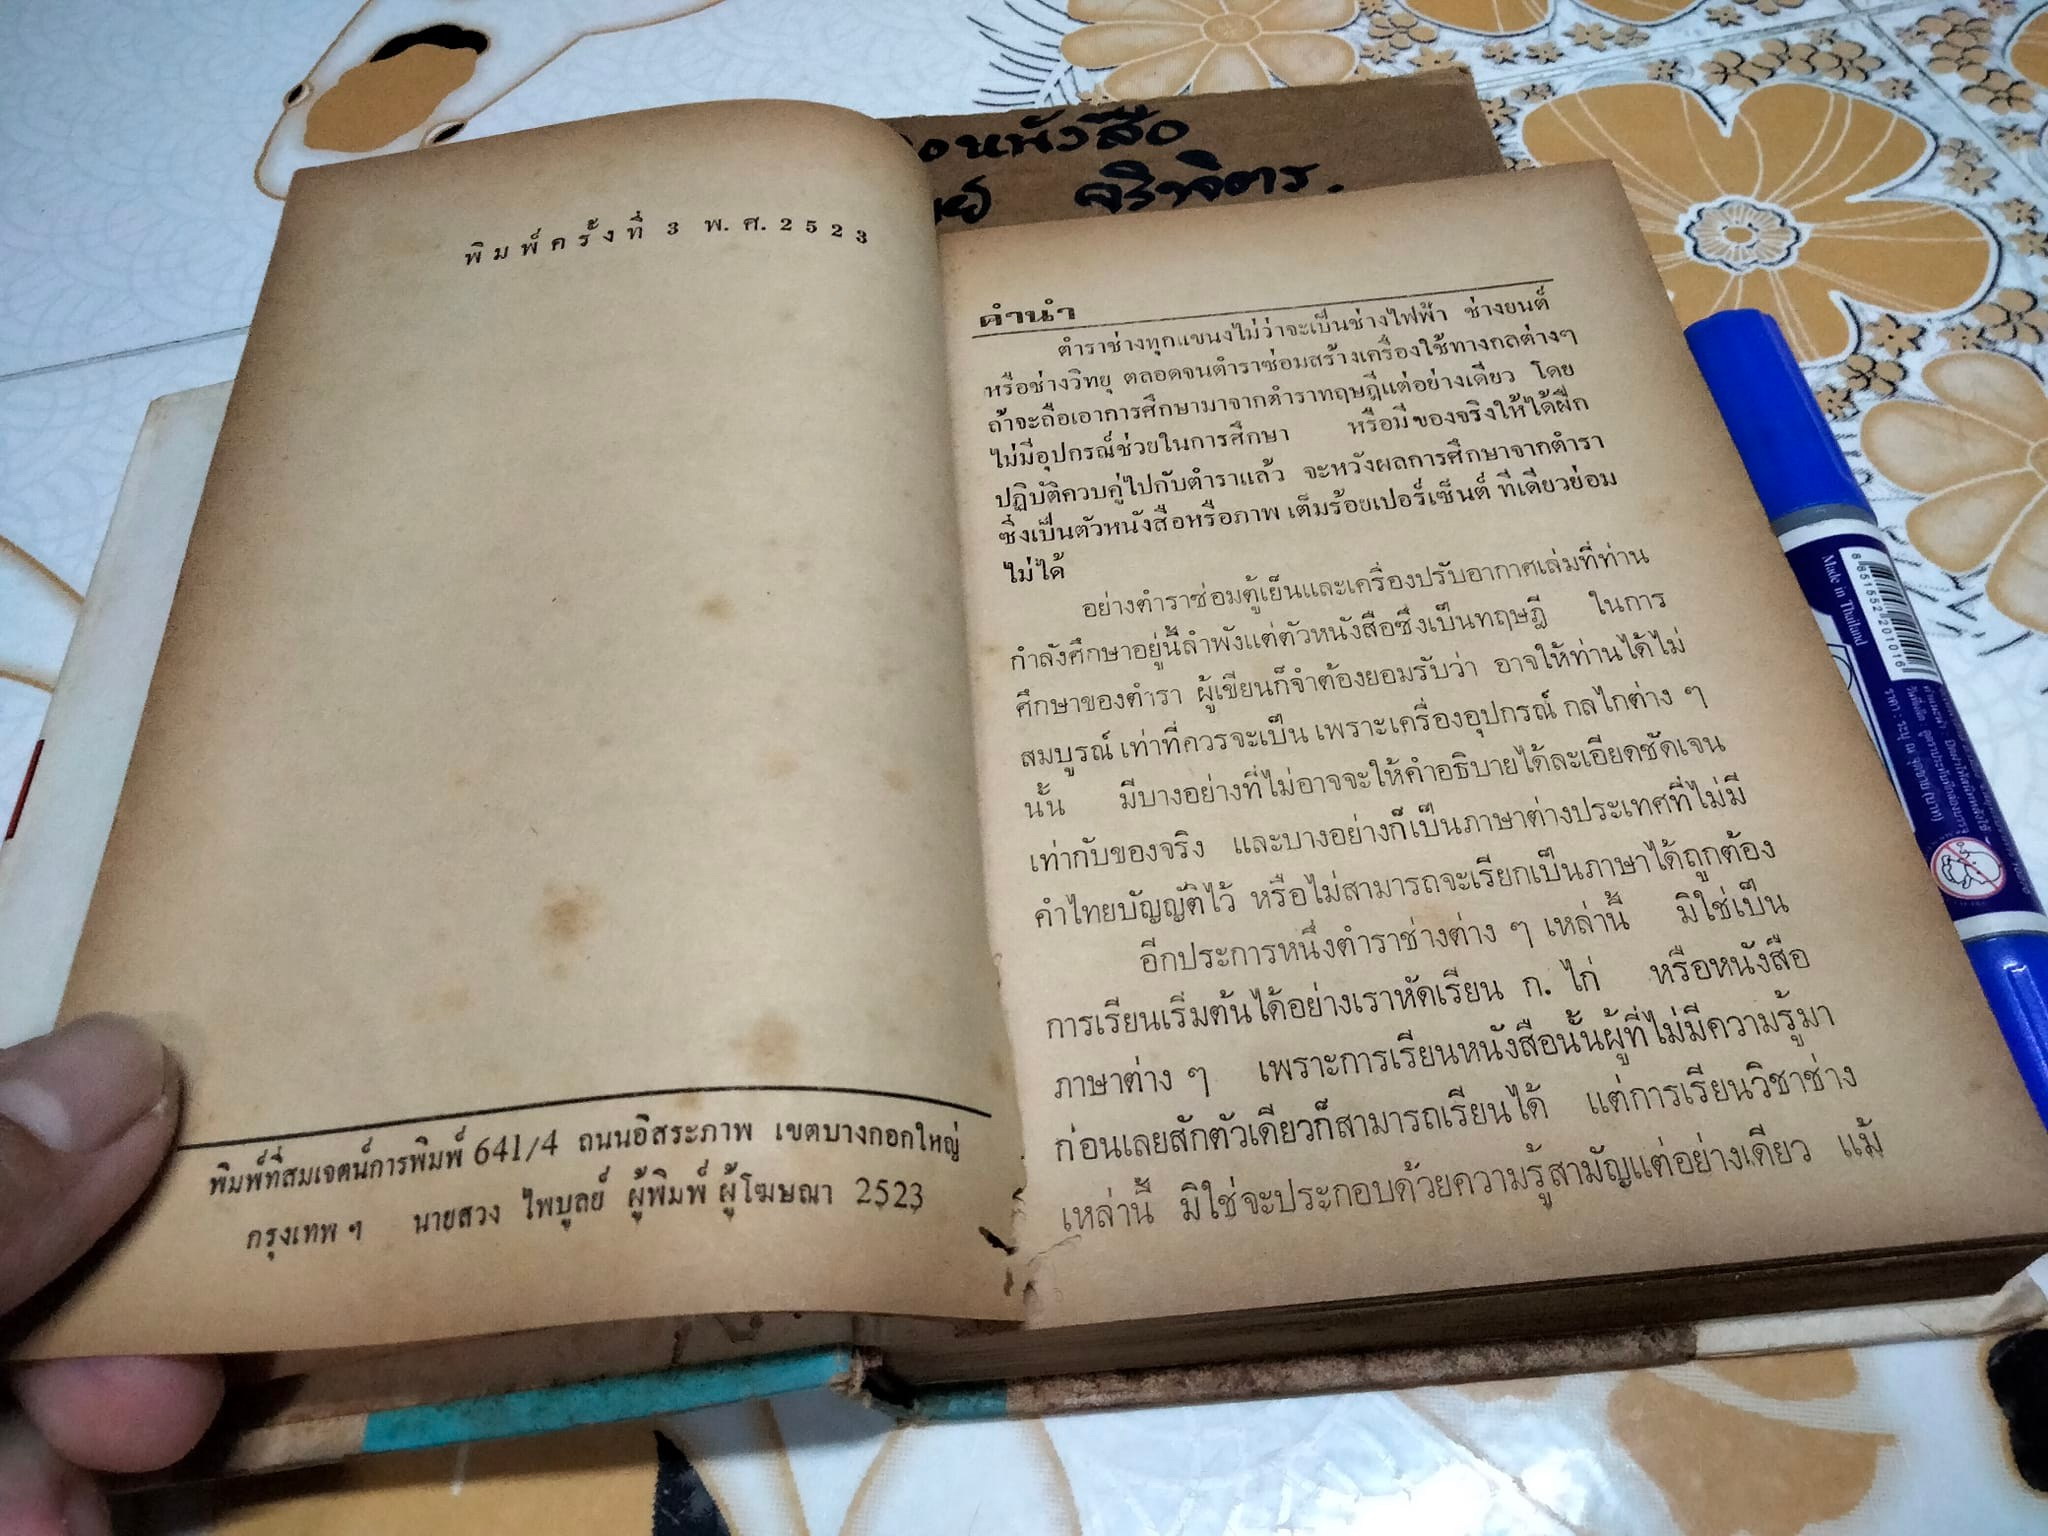 พิมพ์ครั้งที่ 3 พ.ศ. 2523
พิมพ์ที่สมเจตน์การพิมพ์ 641/4 ถนนอิสระภาพ เขตบางกอกใหญ่
กรุงเทพ ฯ นายสวง ไพบูลย์ ผู้พิมพ์ ผู้โฆษณา 2523
หนังสือ
คำนำ
ตำราช่างทุกแขนงไม่ว่าจะเป็นช่างไฟฟ้า ช่างยนต์
หรือช่างวิทยุ ตลอดจนตำราซ่อมสร้างเครื่องใช้ทางกลต่างๆ
ถ้าจะถือเอาการศึกษามาจากตำราทฤษฎีแต่อย่างเดียว โดย
ไม่มีอุปกรณ์ช่วยในการศึกษา หรือมีของจริงให้ได้ฝึก
ปฏิบัติควบคู่ไปกับตำราแล้ว จะหวังผลการศึกษาจากตำรา
ซึ่งเป็นตัวหนังสือหรือภาพ เต็มร้อยเปอร์เซ็นต์ ทีเดียวย่อม
ไม่ได้
อย่างตำราซ่อมตู้เย็นและเครื่องปรับอากาศเล่มที่ท่าน
กำลังศึกษาอยู่นี้ลำพังแต่ตัวหนังสือซึ่งเป็นทฤษฎี ในการ
ศึกษาของตำรา ผู้เขียนก็จำต้องยอมรับว่า อาจให้ท่านได้ไม่
สมบูรณ์ เท่าที่ควรจะเป็น เพราะเครื่องอุปกรณ์ กลไกต่าง ๆ
นั้น มีบางอย่างที่ไม่อาจจะให้คำอธิบายได้ละเอียดชัดเจน
เท่ากับของจริง และบางอย่างก็เป็นภาษาต่างประเทศที่ไม่มี
คำไทยบัญญัติไว้ หรือไม่สามารถจะเรียกเป็นภาษาได้ถูกต้อง
อีกประการหนึ่งตำราช่างต่าง ๆ เหล่านี้ มิใช่เป็น
การเรียนเริ่มต้นได้อย่างเราหัดเรียน ก. ไก่ หรือหนังสือ
ภาษาต่าง ๆ เพราะการเรียนหนังสือนั้นผู้ที่ไม่มีความรู้มา
ก่อนเลยสักตัวเดียวก็สามารถเรียนได้ แต่การเรียนวิชาช่าง
เหล่านี้ มิใช่จะประกอบด้วยความรู้สามัญแต่อย่างเดียว แม้
Made in Thailand